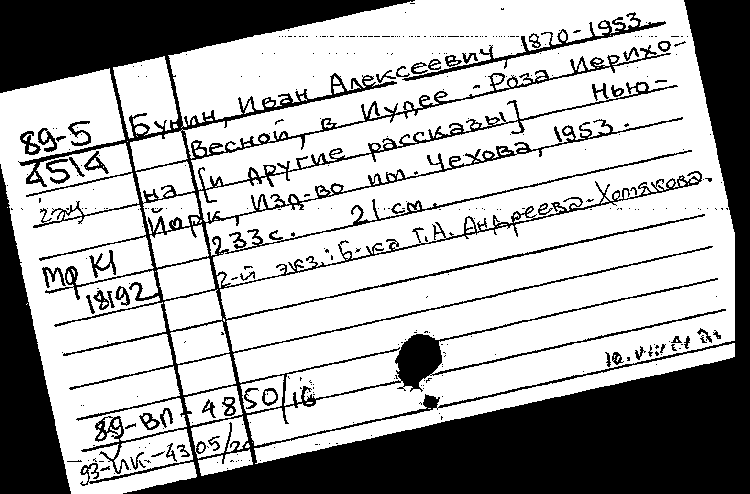 Бунин, Иван Алексеевич, 1870-1953.
89-5
4514
Весной, в Иудее .- Роза Иерихо-
на [и другие рассказы] Нью-
Йорк, Изд-во им. Чехова, 1953.
233 с. 21 см.
2-й экз.: Б-ка Г.А. Андреева-Хомякова.
Мф К1
18192
89-ВП-4850/16
93-ИК-4305/20